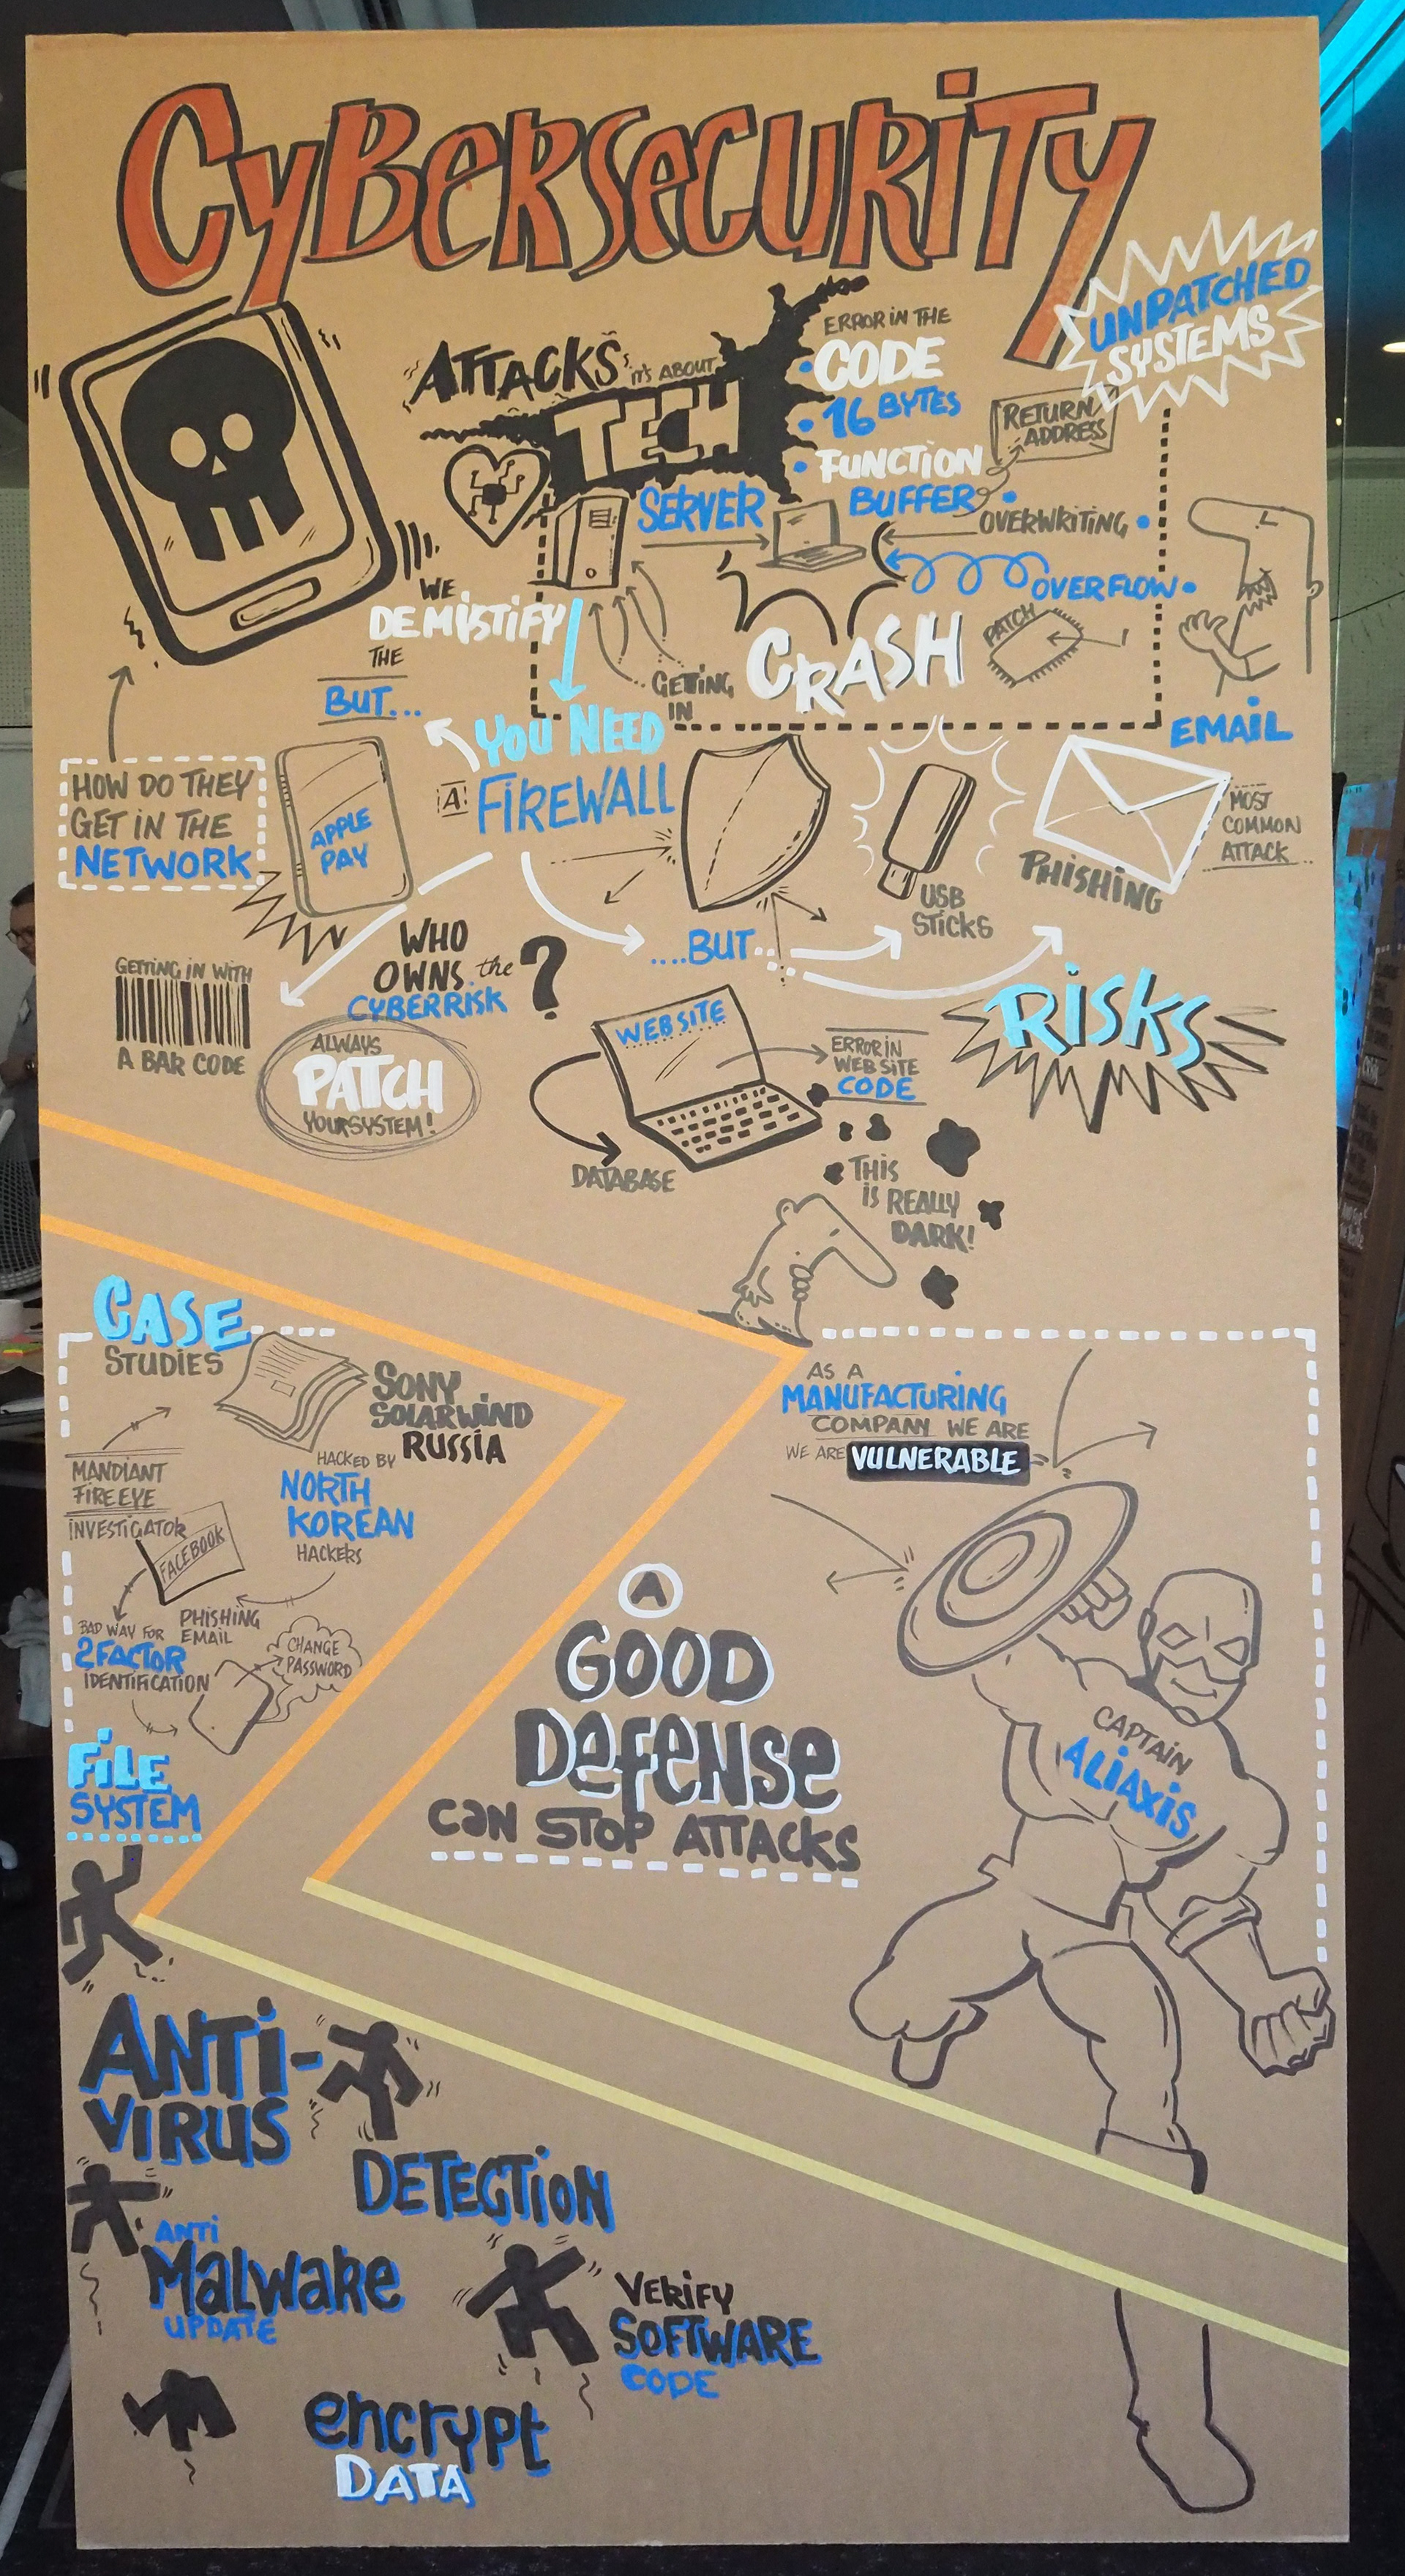 CYBERSECURITY
UNPATCHED
SYSTEMS
ATTACKS
IT'S ABOUT
TECH
ERROR IN THE
CODE
16 BYTES
FUNCTION
BUFFER
RETURN
ADDRESS
OVERWRITING
OVERFLOW
SERVER
CRASH
PATCH
GETTING
IN
WE
DEMISTIFY
THE
BUT...
YOU NEED
A FIREWALL
HOW DO THEY
GET IN THE
NETWORK
APPLE
PAY
EMAIL
MOST
COMMON
ATTACK...
PHISHING
USB
STICKS
....BUT...
RISKS
GETTING IN WITH
A BAR CODE
WHO
OWNS the
CYBERRISK
?
ALWAYS
PATCH
YOUR SYSTEM!
WEBSITE
ERROR IN
WEBSITE
CODE
DATABASE
THIS
IS REALLY
DARK!
CASE
STUDIES
SONY
SOLARWIND
RUSSIA
HACKED BY
NORTH
KOREAN
HACKERS
MANDIANT
FIREEYE
INVESTIGATOR
FACEBOOK
PHISHING
EMAIL
BAD WAY FOR
2FACTOR
IDENTIFICATION
CHANGE
PASSWORD
FILE
SYSTEM
AS A
MANUFACTURING
COMPANY WE ARE
WE ARE VULNERABLE
A
GOOD
DEFENSE
CAN STOP ATTACKS
CAPTAIN
ALIAXIS
ANTI-
VIRUS
DETECTION
ANTI
MALWARE
UPDATE
VERIFY
SOFTWARE
CODE
encrypt
DATA